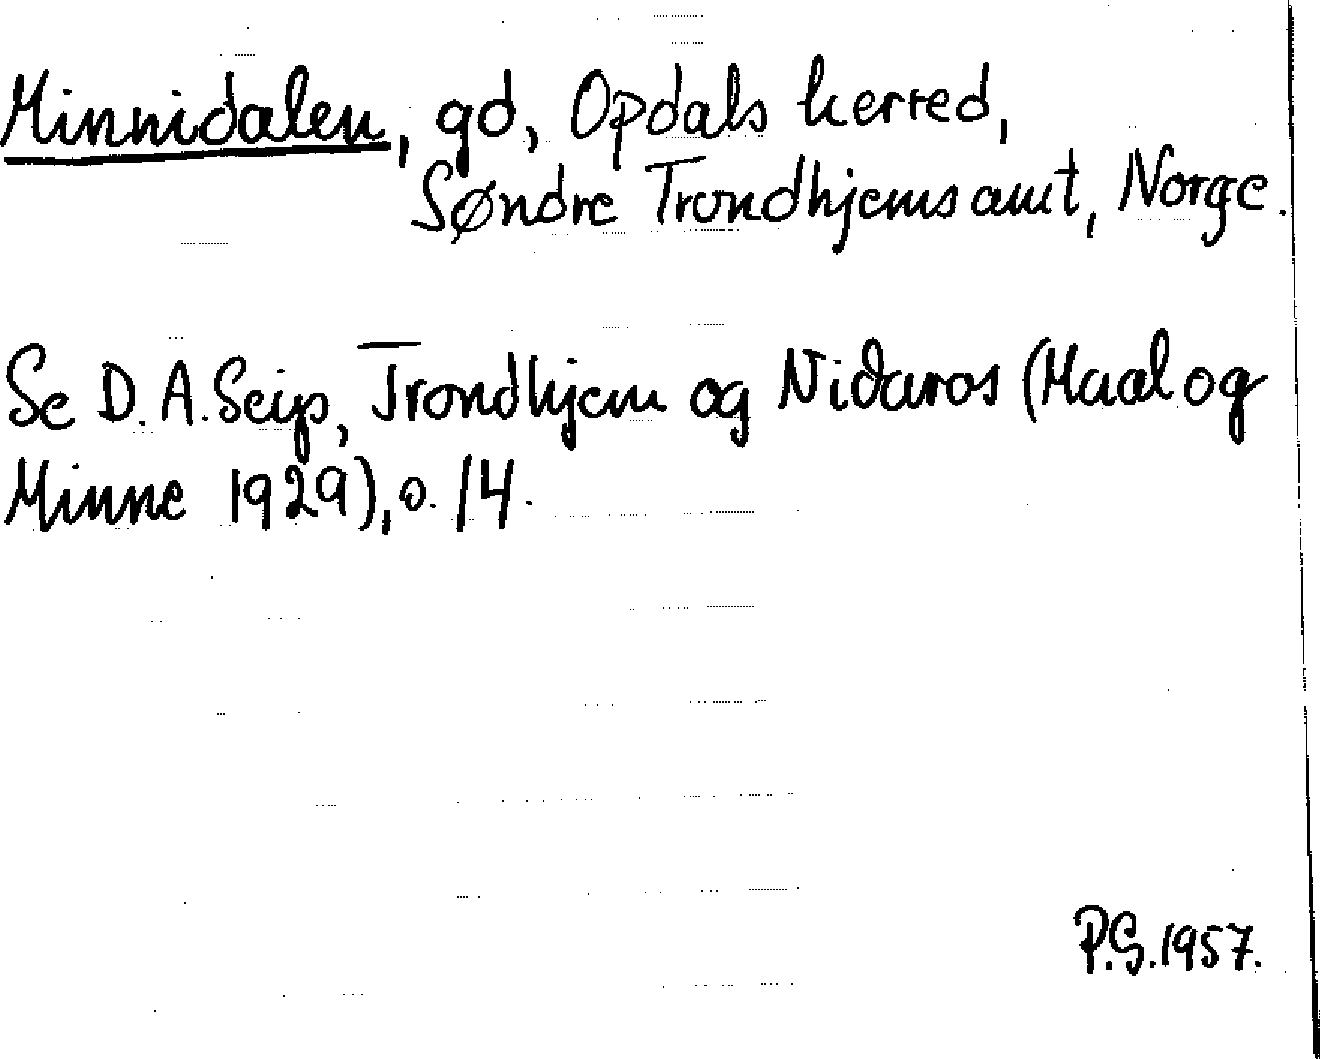 Minnidalen, gd, Opdals herred,
Søndre Trondhjems amt, Norge.
Se D. A. Seip, Trondhjem og Nidaros (Maal og
Minne 1929), s. 14.
P.S. 1957.